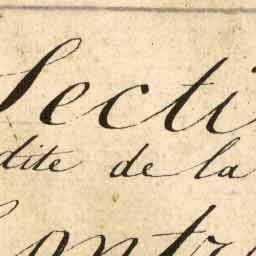 Secti
dite de la
Contr